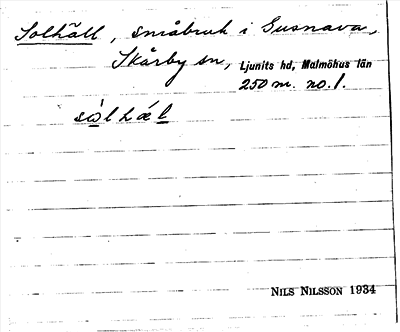 Solhäll, småbruk i Gusnava,
Skårby sn, Ljunits hd, Malmöhus län
250 m. no. 1.
sòlhæ̀l
NILS NILSSON 1934